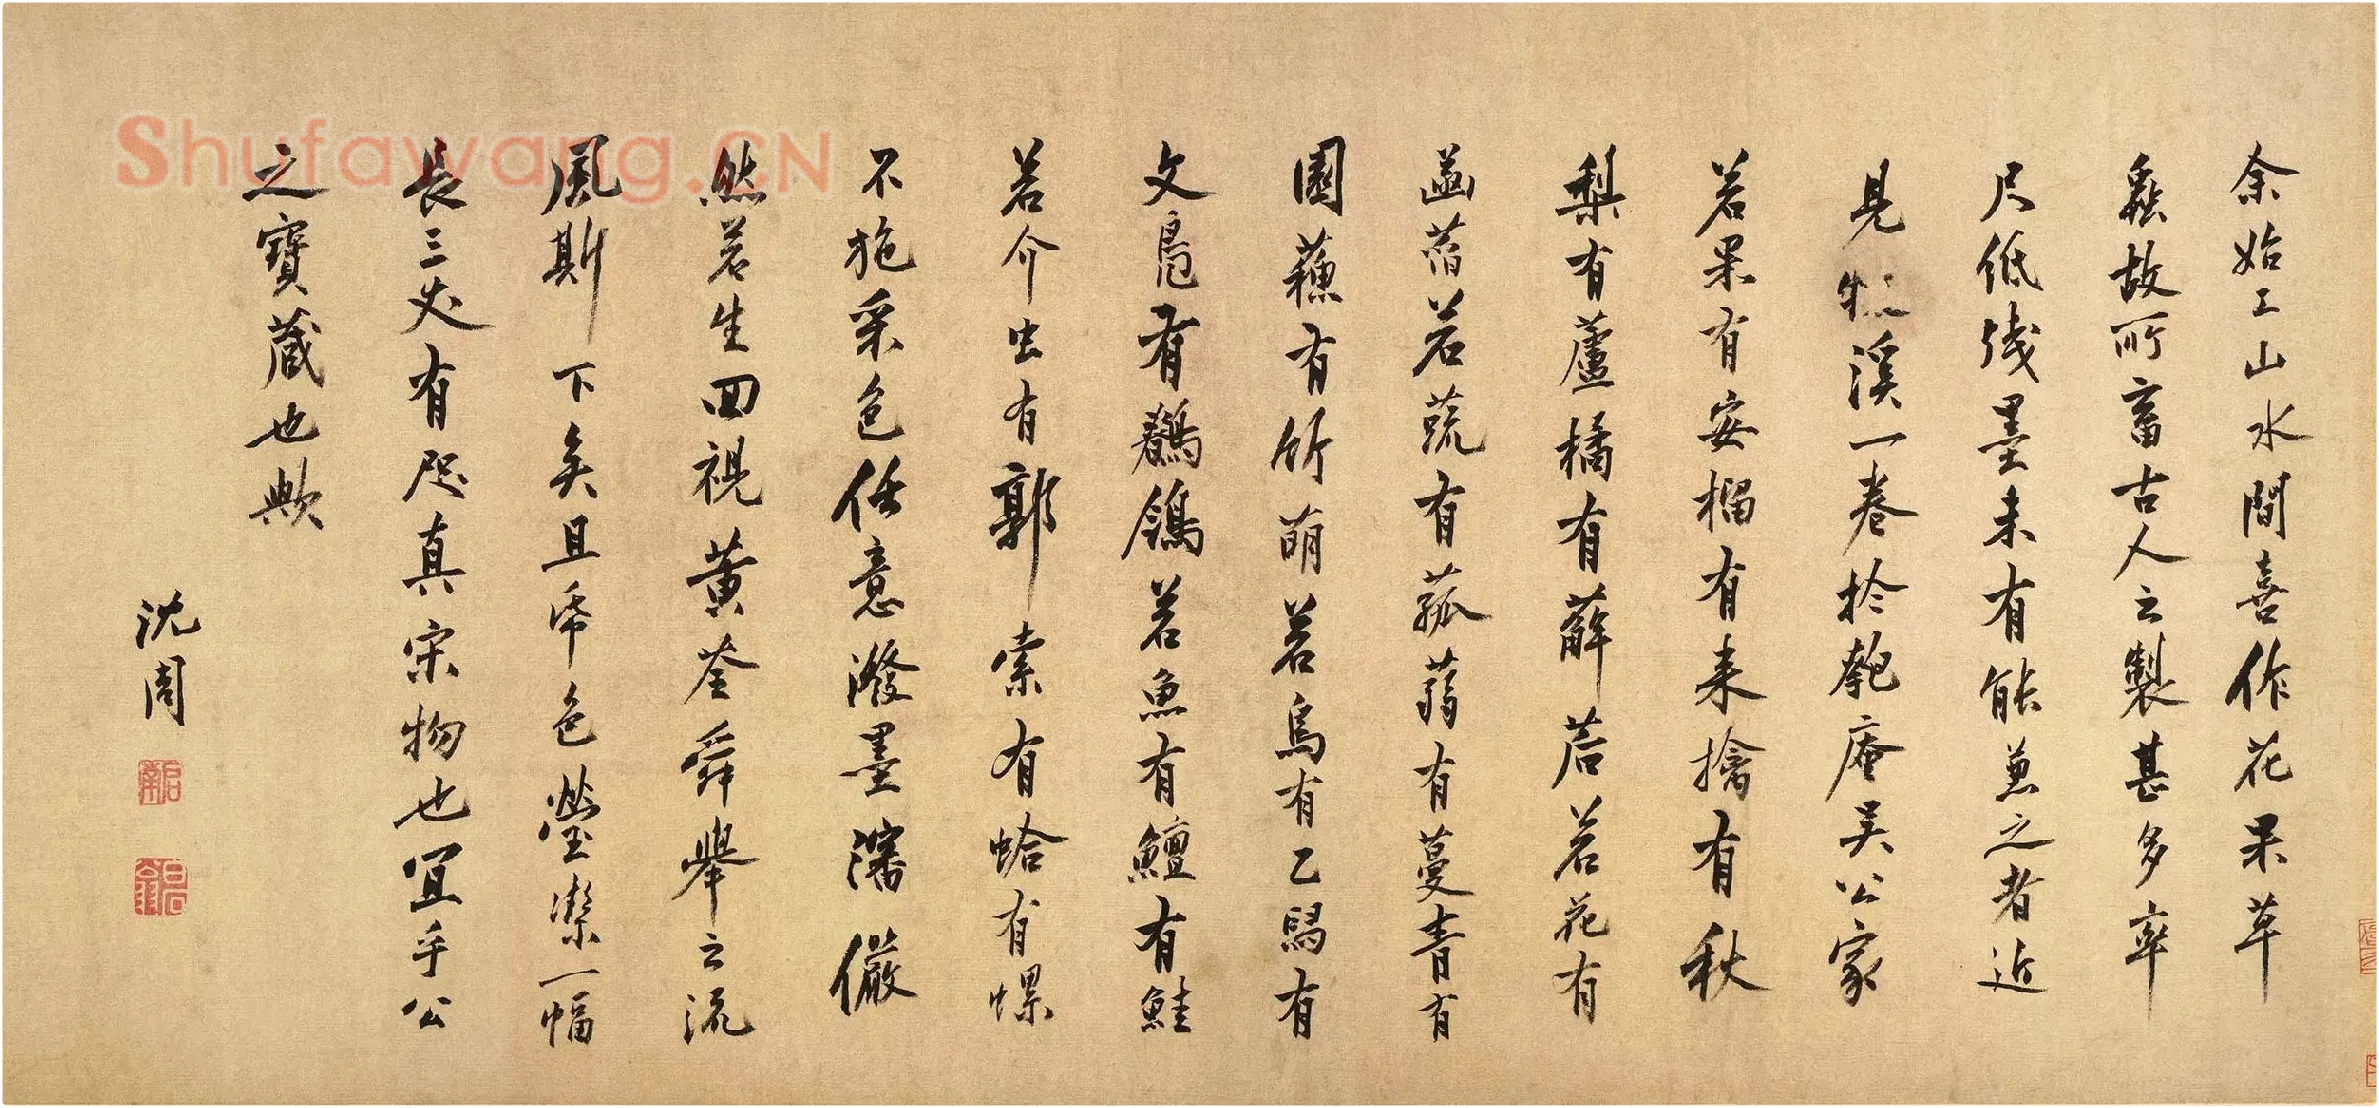 余始工山水間喜作花果草
蟲故所畜古人之製甚多率
尺低淺墨未有能兼之者近
見牧溪一卷於匏庵吳公家
若果有安榴有来擒有秋
梨有蘆橘有薢茩若花有
菡萏若蔬有菰蒻有蔓青有
園蘓有竹萌若鳥有乙舄有
文鳧有鶺鴒若魚有鱣有鮭
若介虫有郭索有蛤有螺
不施采色任意潑墨瀋儼
然若生回視黄荃舜舉之流
風斯下矣且帋色瑩潔一幅
長三丈有咫真宋物也宜乎公
之寶蔵也歟
沈周
Shufawang.CN